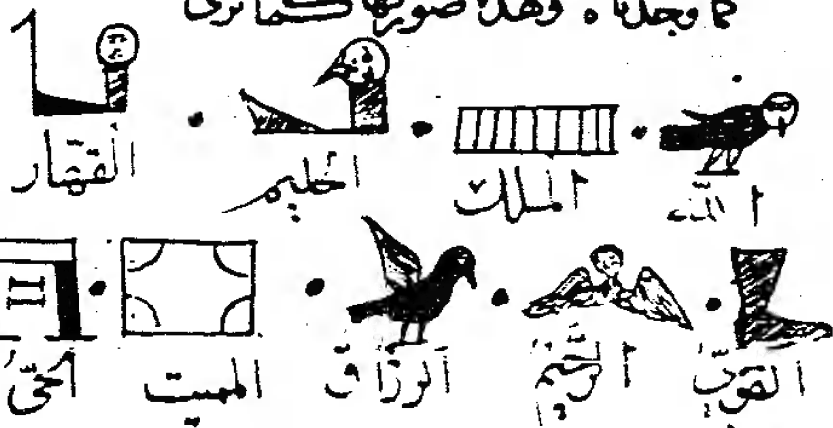 كما وجدنا ه وهذه صورتها كما ترى
الله الملك الحليم القهّار
القويّ الرّحيمُ الرزّاق المميت الحيّ